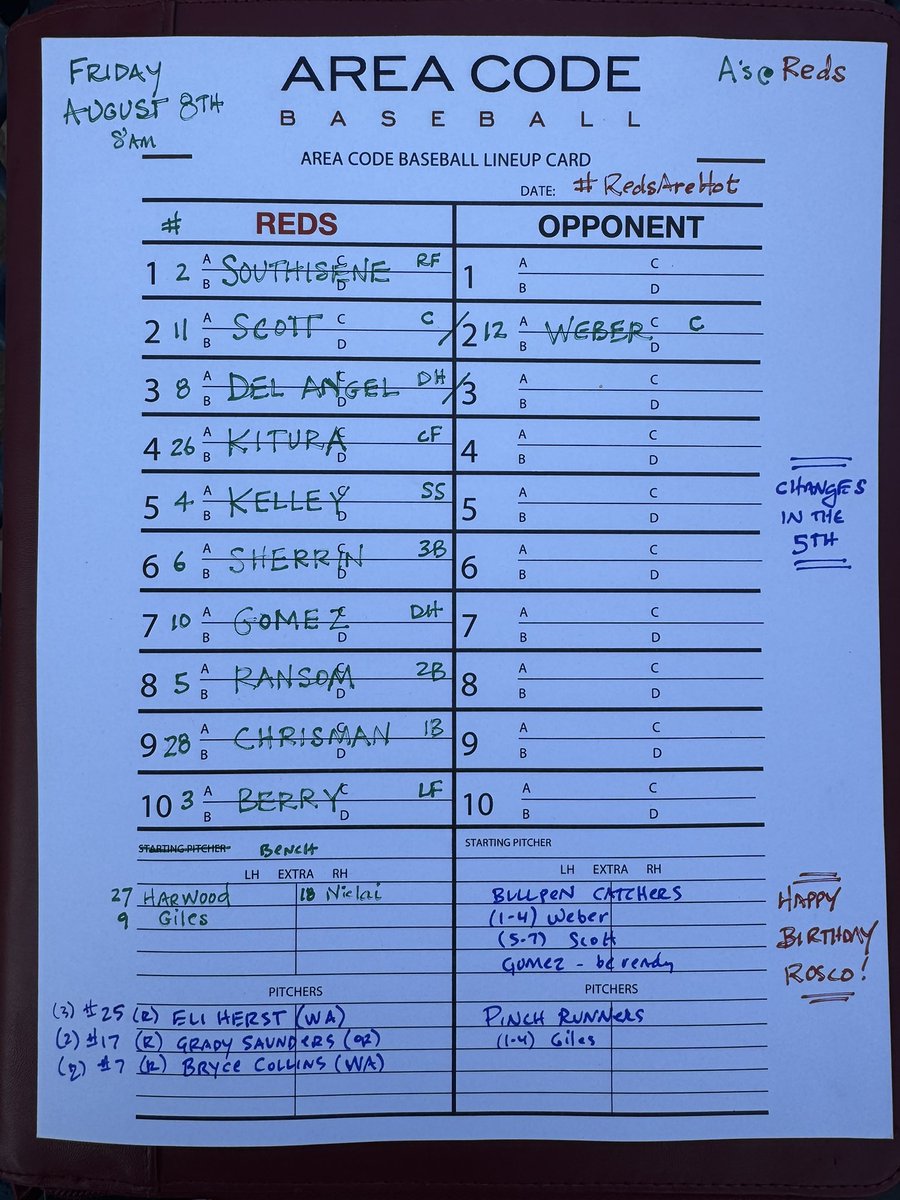 FRIDAY
AUGUST 8TH
8AM
AREA CODE
BASEBALL
A's @ Reds
AREA CODE BASEBALL LINEUP CARD
DATE: #RedsAreHot
# REDS OPPONENT
1 2 A B SOUTHISENE C D RF 1 A B C D
2 11 A B SCOTT C D C / 2 12 A B WEBER C D C
3 8 A B DEL ANGEL C D DH / 3 A B C D
4 26 A B KITURA C D CF 4 A B C D
5 4 A B KELLEY C D SS 5 A B C D
6 6 A B SHERRIN C D 3B 6 A B C D
7 10 A B GOMEZ C D DH 7 A B C D
8 5 A B RANSOM C D 2B 8 A B C D
9 28 A B CHRISMAN C D 1B 9 A B C D
10 3 A B BERRY C D LF 10 A B C D
CHANGES
IN THE
5TH
STARTING PITCHER BENCH STARTING PITCHER
LH EXTRA RH LH EXTRA RH
27 HARWOOD 18 Nielai BULLPEN CATCHERS
9 Giles (1-4) Weber
(5-7) Scott
GOMEZ - be ready
HAPPY
BIRTHDAY
ROSCO!
PITCHERS PITCHERS
(3) #25 (R) ELI HERST (WA) PINCH RUNNERS
(2) #17 (R) GRADY SAUNDERS (OR) (1-4) Giles
(2) #7 (R) BRYCE COLLINS (WA)